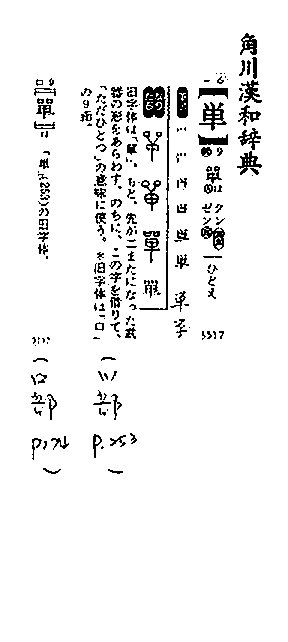 角川漢和辞典
【単】9 單 タン ゼン ひとえ
5317
筆順 単 単字
旧字体は「單」。もと、先が二またになった武
器の形をあらわす。のちに、この字を借りて、
「ただひとつ」の意味に使う。※旧字体は「口」
の9画。
(ツ部 P.253)
【單】「単」(253)の旧字体。
(口部